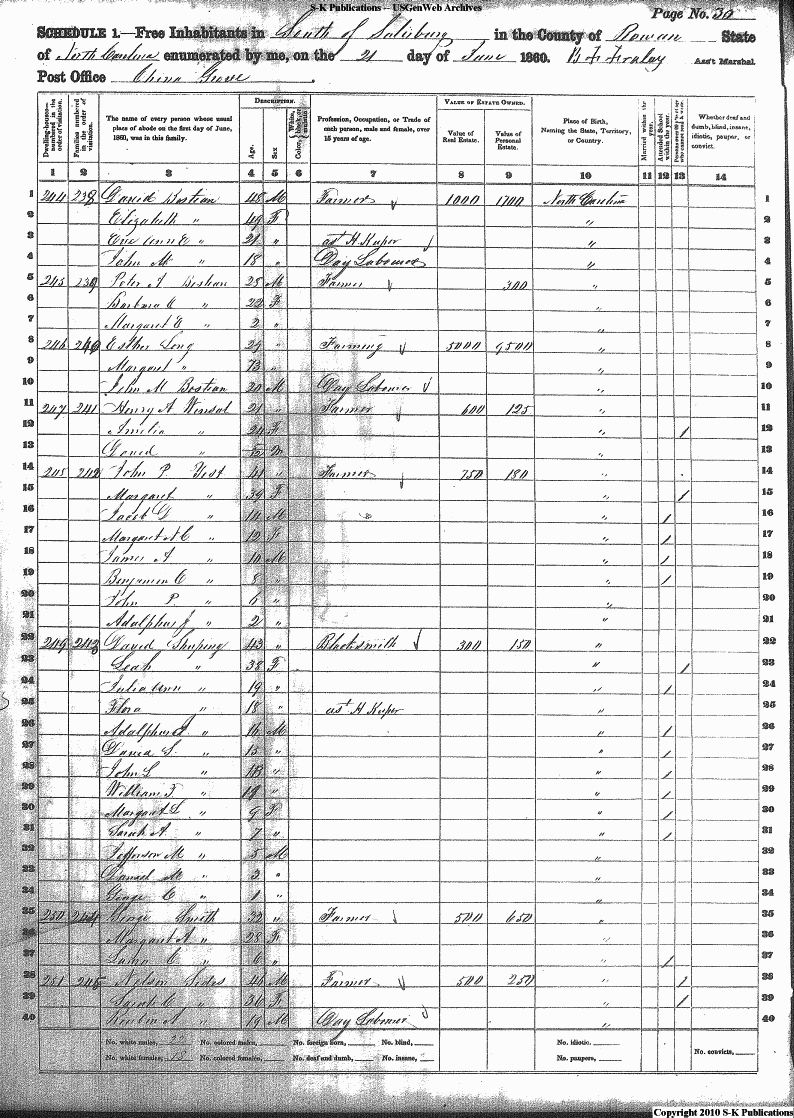 S-K Publications -- USGenWeb Archives
Page No. 30
SCHEDULE 1.—Free Inhabitants in South of Salisburg in the County of Rowan State
of North Carolina enumerated by me, on the 21 day of June 1860. B F Fraley Ass't Marshal.
Post Office China Grove.
DESCRIPTION. VALUE OF ESTATE OWNED.
Dwelling-houses—numbered in the order of visitation. Families numbered in the order of visitation. The name of every person whose usual place of abode on the first day of June, 1860, was in this family. Age. Sex. Color, White, black, or mulatto. Profession, Occupation, or Trade of each person, male and female, over 15 years of age. Value of Real Estate. Value of Personal Estate. Place of Birth, Naming the State, Territory, or Country. Married within the year. Attended School within the year. Whether deaf and dumb, blind, insane, idiotic, pauper, or convict.
1 2 3 4 5 6 7 8 9 10 11 12 13 14
1 244 238 David Bostian 48 M Farmer 1000 1700 North Carolina 1
2 Elizabeth " 49 F " 2
3 Eve Ann E " 21 " ast H Keeper " 3
4 John M " 18 " Day Labourer " 4
5 245 239 Peter A Bostian 25 M Farmer 300 " 5
6 Barbara C " 22 F " 6
7 Margaret E " 2 " " 7
8 246 240 Esther Long 29 " Farming 5000 9500 " 8
9 Margaret " 73 " " 9
10 John M Bostian 20 M Day Labourer " 10
11 247 241 Henry A 21 " Farmer 600 125 " 11
12 Amelia " 24 F " / 12
13 " M " 13
14 248 242 John P. Yost 41 " Farmer 750 180 " 14
15 Margaret " 39 F " / 15
16 Jacob " 14 M " / 16
17 Margaret " 12 F " / 17
18 James A " 10 M " / 18
19 Benjamin C " 8 " " / 19
20 John P. " 6 " " 20
21 Adolphus J " 2 " " 21
22 249 243 David Shuping 43 " Blacksmith 300 150 " 22
23 Leah " 38 F " / 23
24 Julia Ann " 19 " " / 24
25 Flora " 18 " ast H Keeper " 25
26 Adolphus " 16 M " / 26
27 David S. " 15 " " / 27
28 John L " 13 " " / 28
29 William T " " " / 29
30 Margaret L " 9 F " / 30
31 Sarah A " 7 " " / 31
32 Jefferson M " 5 M " 32
33 Daniel M " 3 " " 33
34 George C " 1 " " 34
35 250 244 George Smith 32 " Farmer 500 650 " 35
36 Margaret A " 28 F " 36
37 Laura C " 6 " " / 37
38 251 245 Nelson Sides 46 M Farmer 500 250 " / 38
39 C " 36 F " / 39
40 Reuben A " 19 M Day Labourer " 40
No. white males, 22 No. colored males, No. foreign born, No. blind, No. idiotic,
No. white females, 18 No. colored females, No. deaf and dumb, No. insane, No. paupers, No. convicts,
Copyright 2010 S-K Publications